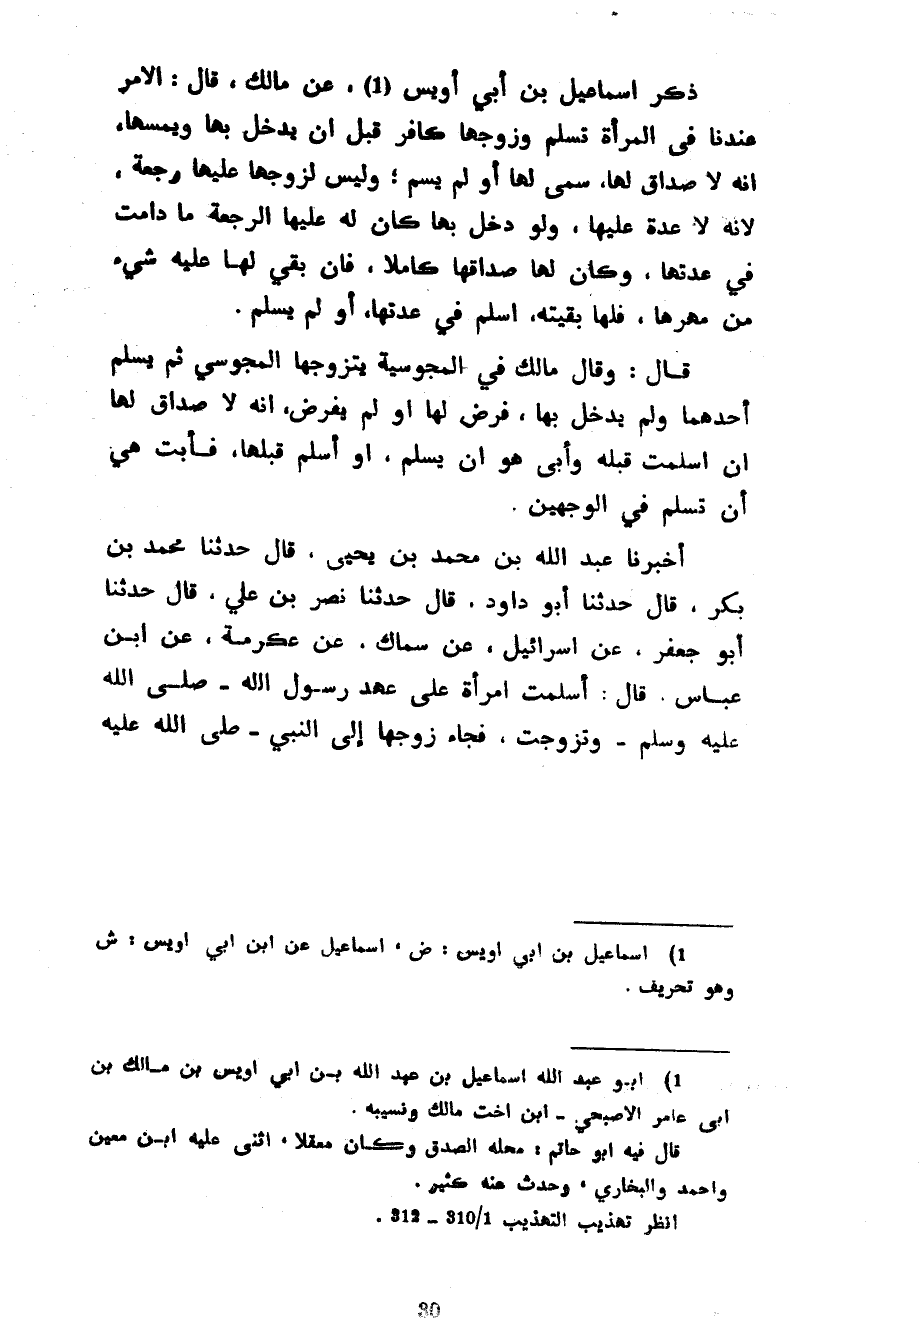 ذكر اسماعيل بن أبي أويس (1) ، عن مالك ، قال : الامر
عندنا فى المرأة تسلم وزوجها كافر قبل ان يدخل بها ويمسها،
انه لا صداق لها، سمى لها أو لم يسم ؛ وليس لزوجها عليها رجعة ،
لانه لا عدة عليها ، ولو دخل بها كان له عليها الرجعة ما دامت
في عدتها ، وكان لها صداقها كاملا ، فان بقي لهـا عليه شيء
من مهرها ، فلها بقيته، اسلم في عدتها، أو لم يسلم .
قـال : وقال مالك في المجوسية يتزوجها المجوسي ثم يسلم
أحدهما ولم يدخل بها ، فرض لها او لم يفرض، انه لا صداق لها
ان اسلمت قبله وأبى هو ان يسلم ، او أسلم قبلها، فـأبت هي
أن تسلم في الوجهين .
أخبرنا عبد الله بن محمد بن يحيى ، قال حدثنا محمد بن
بكر ، قال حدثنا أبو داود ، قال حدثنا نصر بن علي ، قال حدثنا
أبو جعفر ، عن اسرائيل ، عن سماك ، عن عكرمـة ، عن ابـن
عبـاس . قال : أسلمت امرأة على عهد رسـول الله ـ صلـى الله
عليه وسلم ـ وتزوجت ، فجاء زوجها إلى النبي ـ صلى الله عليه
1) اسماعيل بن ابي اويس : ض ، اسماعيل عن ابن ابي اويس : ش
وهو تحريف .
1) ابـو عبد الله اسماعيل بن عبد الله بـن ابي اويس بن مـالك بن
ابى عامر الاصبحي ـ ابن اخت مالك ونسيبه .
قال فيه ابو حاتم : محله الصدق وكـان مغفلا ، اثنى عليه ابـن معين
واحمد والبخاري ، وحدث عنه كثير .
انظر تهذيب التهذيب 310/1 ـ 312 .
80